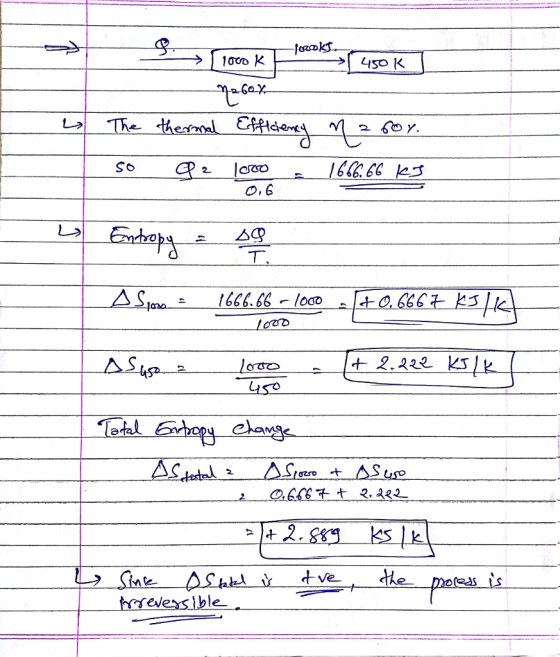 ⇒ Q. → 1000 K 1000 KJ. → 450 K
η = 60%
↳ The thermal Efficiency η = 60%.
so Q = 1000/0.6 = 1666.66 KJ
↳ Entropy = ΔQ/T.
ΔS1000 = (1666.66 - 1000)/1000 = +0.6667 KJ/K
ΔS450 = 1000/450 = + 2.222 KJ/K
Total Entropy change
ΔStotal = ΔS1000 + ΔS450
= 0.6667 + 2.222
= + 2.889 KJ/K
↳ Since ΔStotal is +ve, the process is
irreversible.